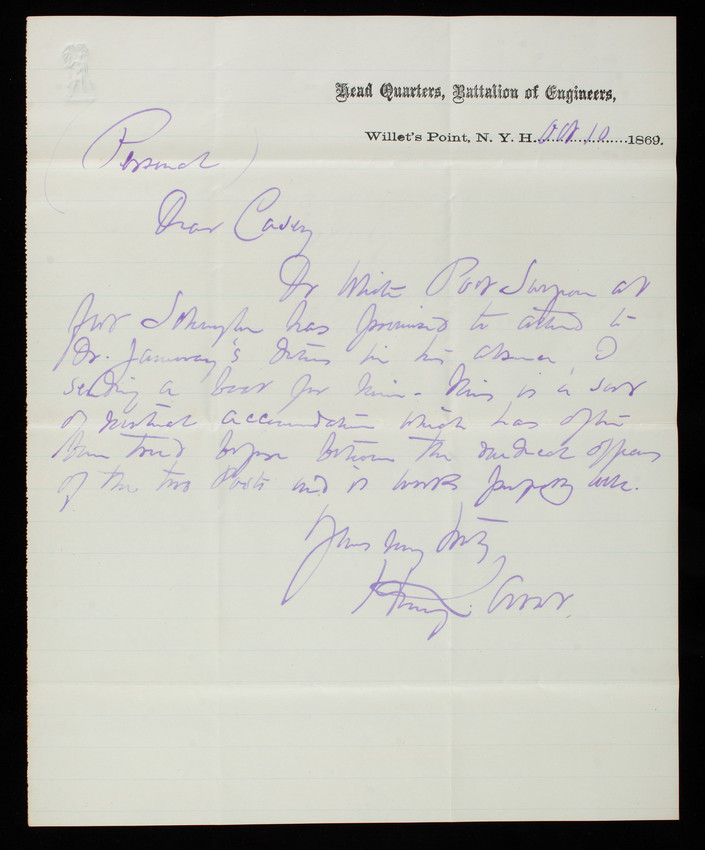 Head Quarters, Battalion of Engineers,
Willet's Point, N. Y. H. Oct 10 1869.
(Personal)
Dear Casey
Dr White Post Surgeon at
Fort Schuyler has promised to attend to
Dr. Janeway's duties in his absence, I
sending a boat for him - This is a sort
of mutual accommodation which has often
been tried before between the medical officers
of the two Posts and it works perfectly well.
Yours very truly
Henry L. Abbot.